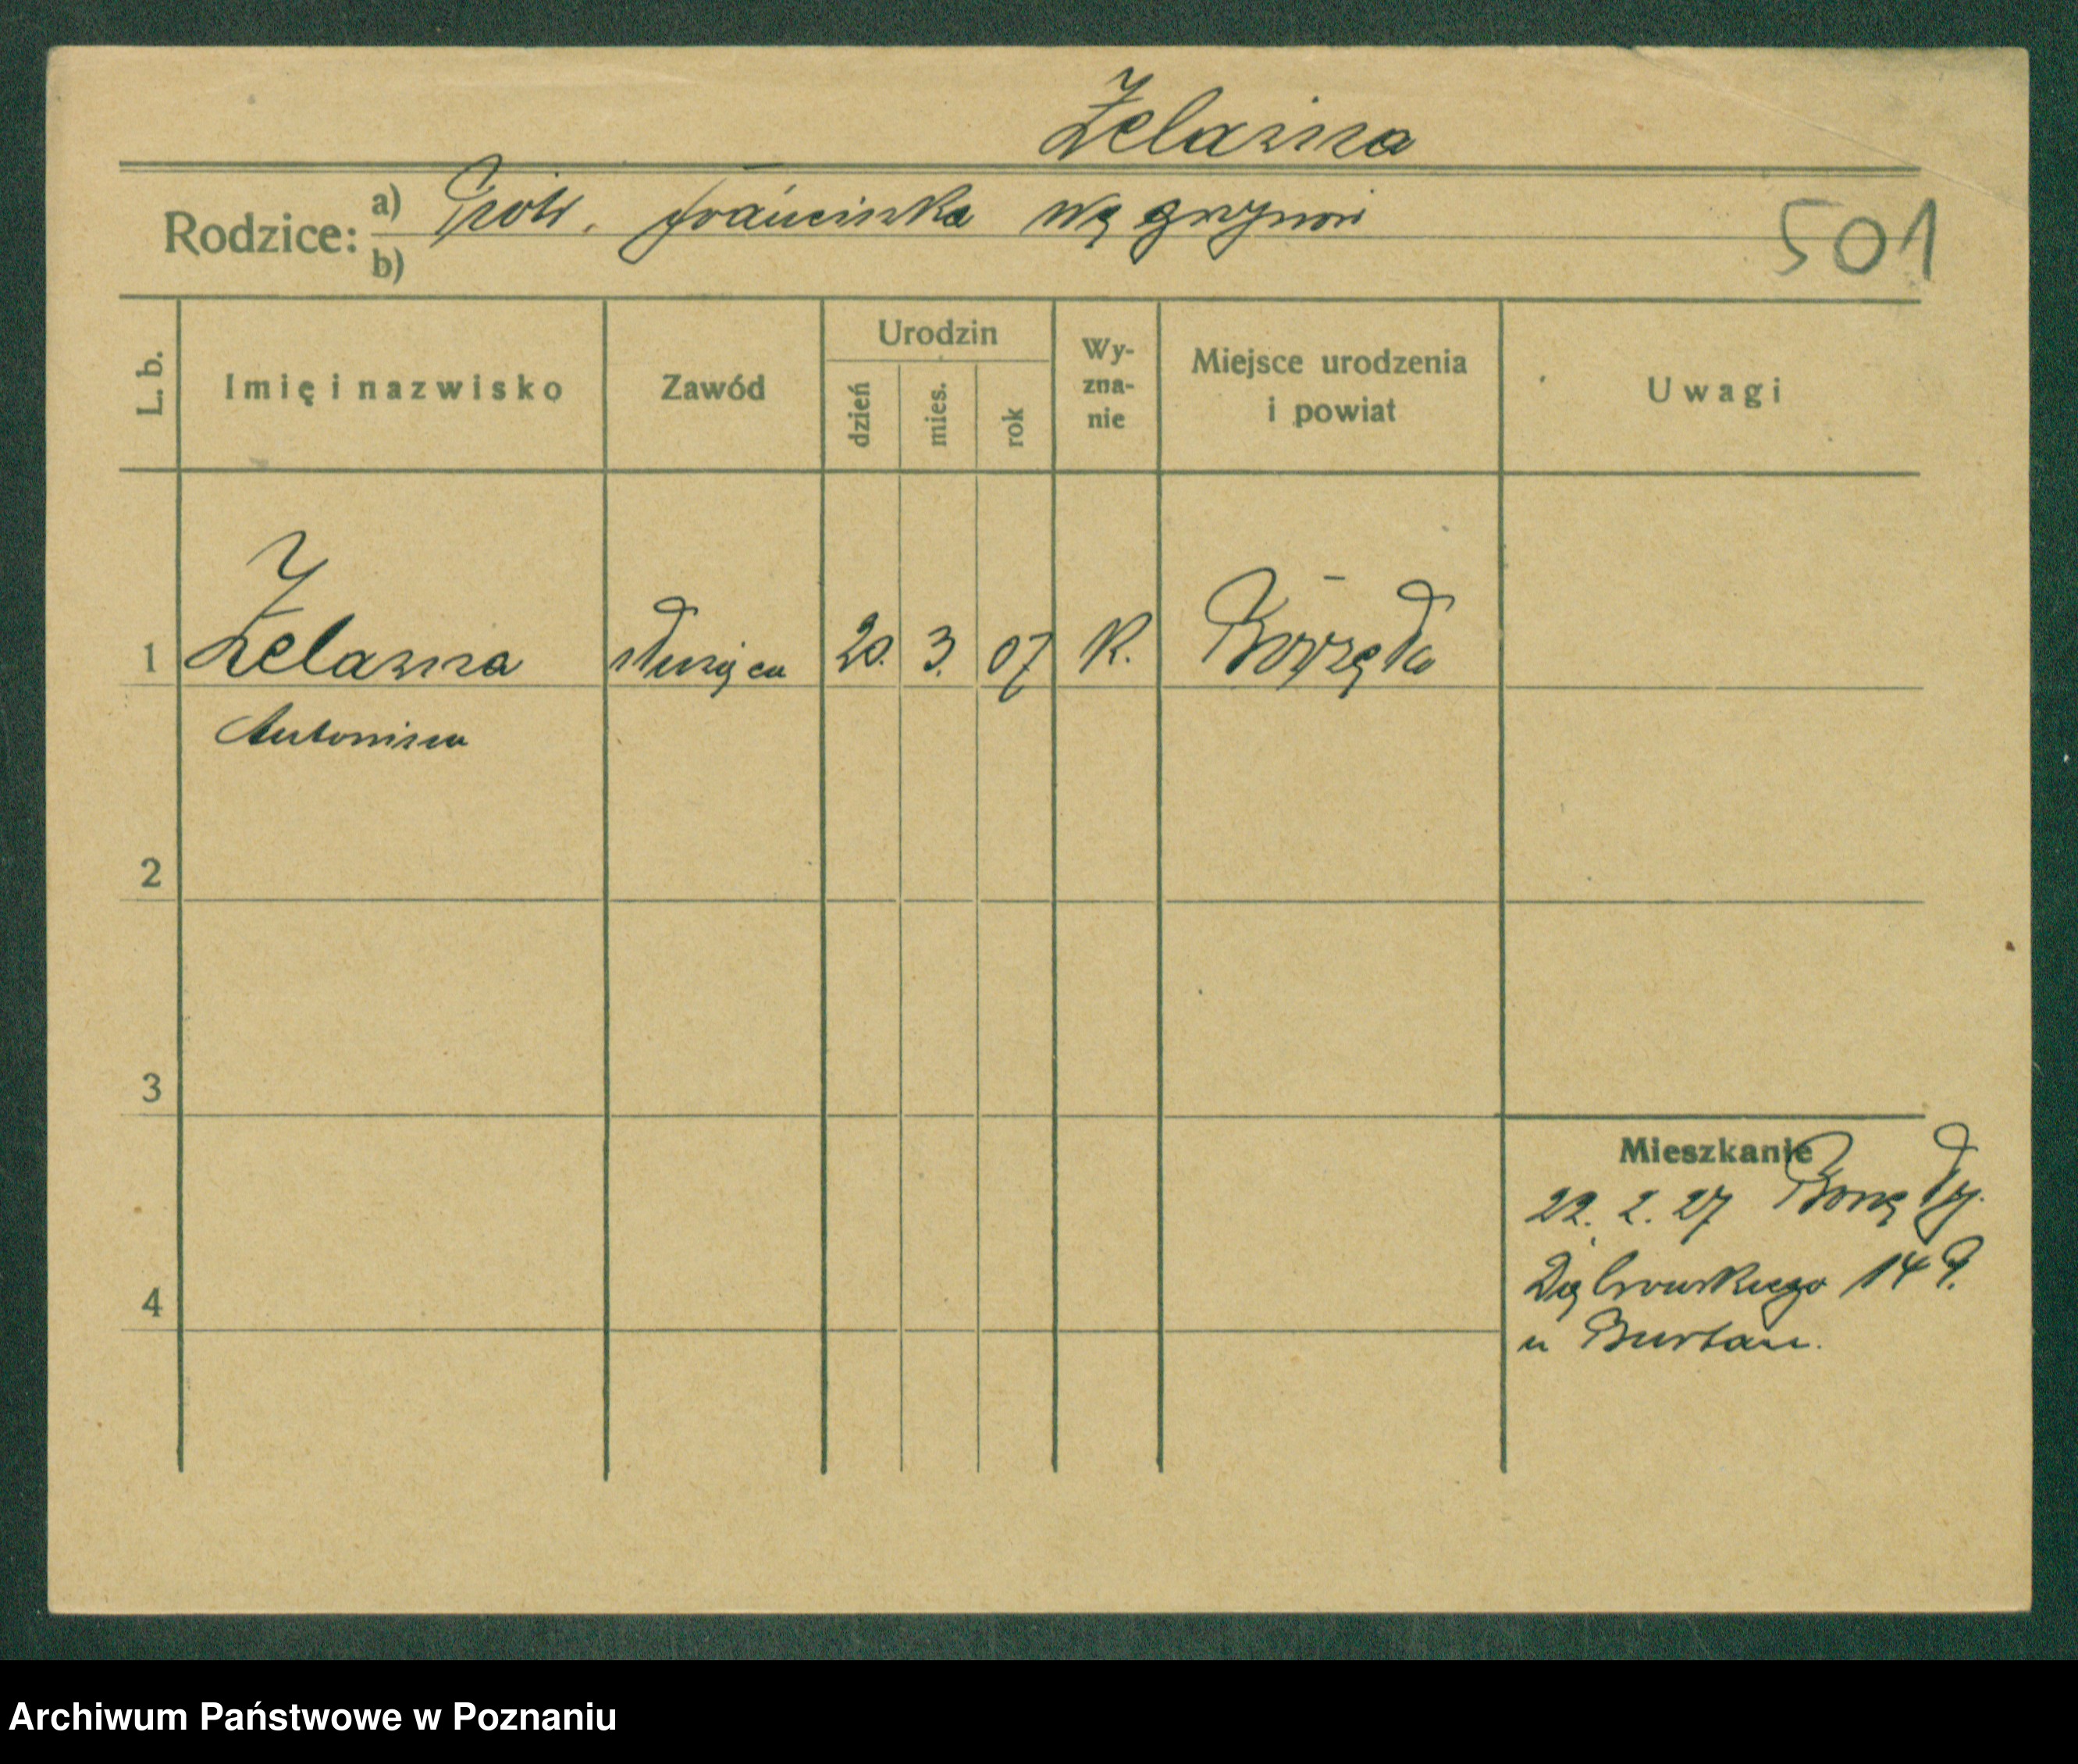 Żelazna
Rodzice: a) Piotr, Franciszka Węgrzynow
b)
501
L. b.
Imię i nazwisko
Zawód
Urodzin
dzień
mies.
rok
Wy-
zna-
nie
Miejsce urodzenia
i powiat
Uwagi
1 Żelazna służąca 20. 3. 07 K.
Antonina
2
3
Mieszkanie
22. 2. 27
Dąbrowskiego 149.
4
u
Archiwum Państwowe w Poznaniu